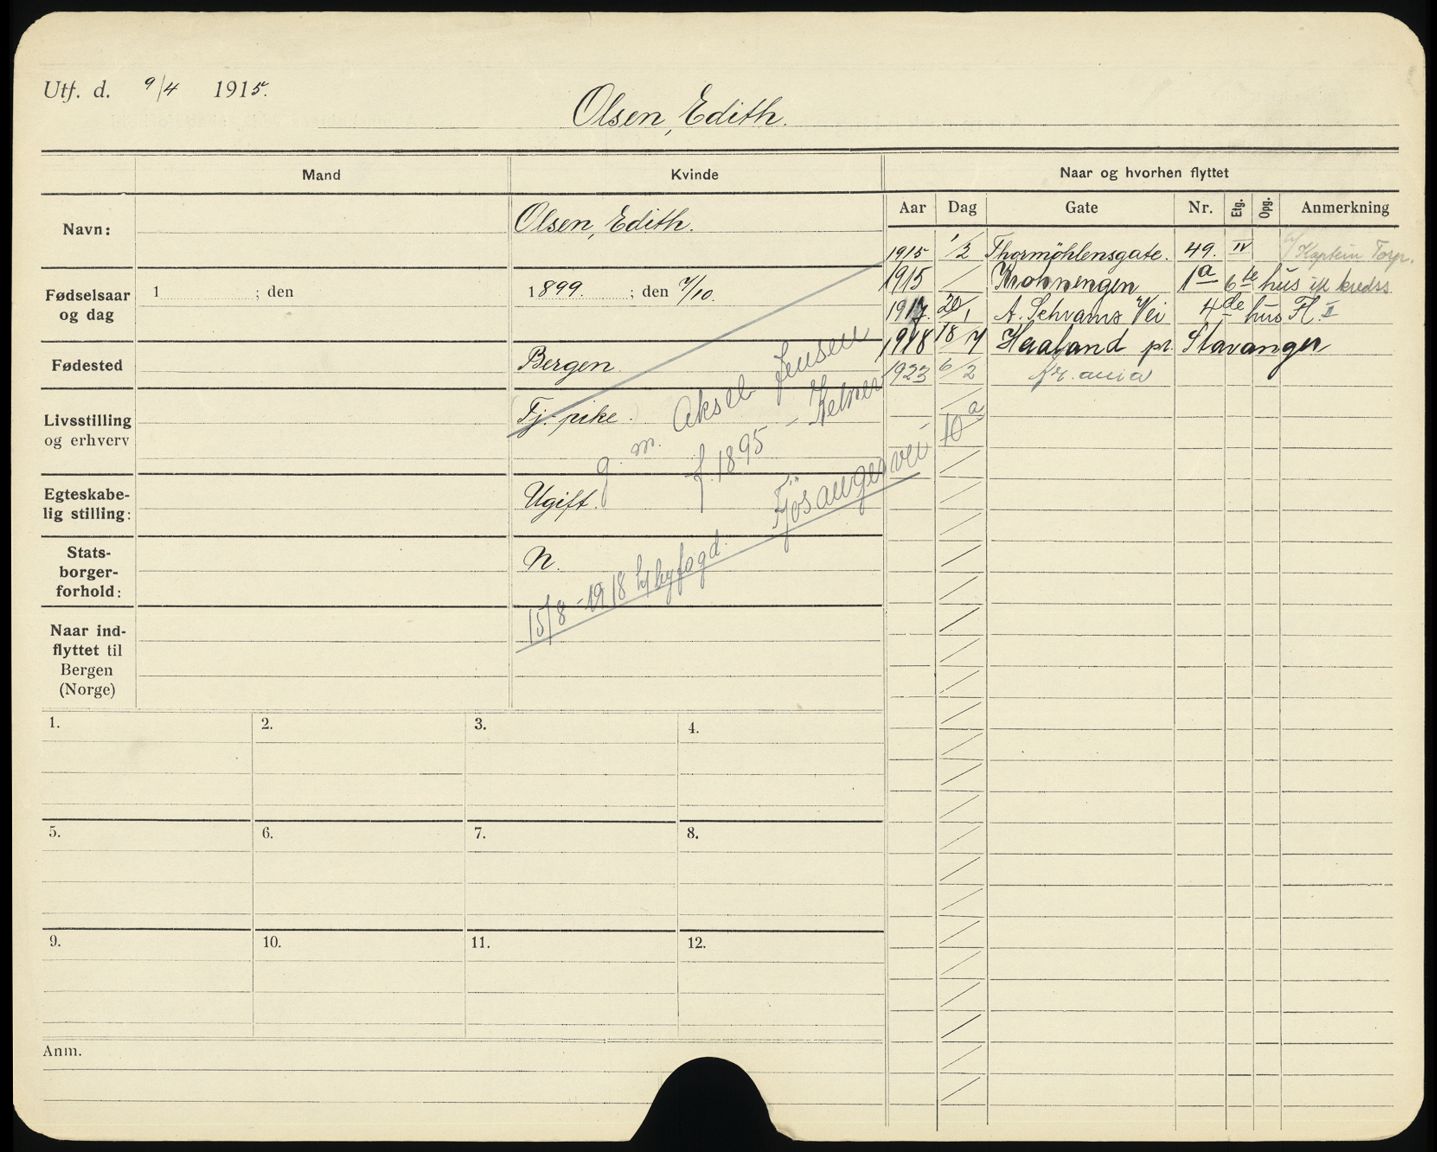 Utf. d. 9/4 1915.
Olsen, Edith.
Mand
Kvinde
Naar og hvorhen flyttet
Aar Dag Gate Nr. Etg. Opg. Anmerkning
Navn: Olsen, Edith.
Fødselsaar og dag
1 ; den
1899. ; den 7/10.
Fødested
Bergen.
Livsstilling og erhverv
Tj. pike.
Egteskabe-
lig stilling:
Ugift.
Stats-
borger-
forhold:
N.
Naar ind-
flyttet til
Bergen
(Norge)
g. m. Aksel Jensen
f. 1895 - Kelner
15/8-1918 byfogd. Fjösangervei 10a
1915 1/2 Thormöhlensgate. 49. IV Kaptein Torp.
1915 / Krohnengen 1a 6te hus
1917. 20/1 A. Schrams Vei 4de hus Fl II
1918 18/7 Haaland pr. Stavanger
1923 6/2 Kr.ania
1. 2. 3. 4.
5. 6. 7. 8.
9. 10. 11. 12.
Anm.